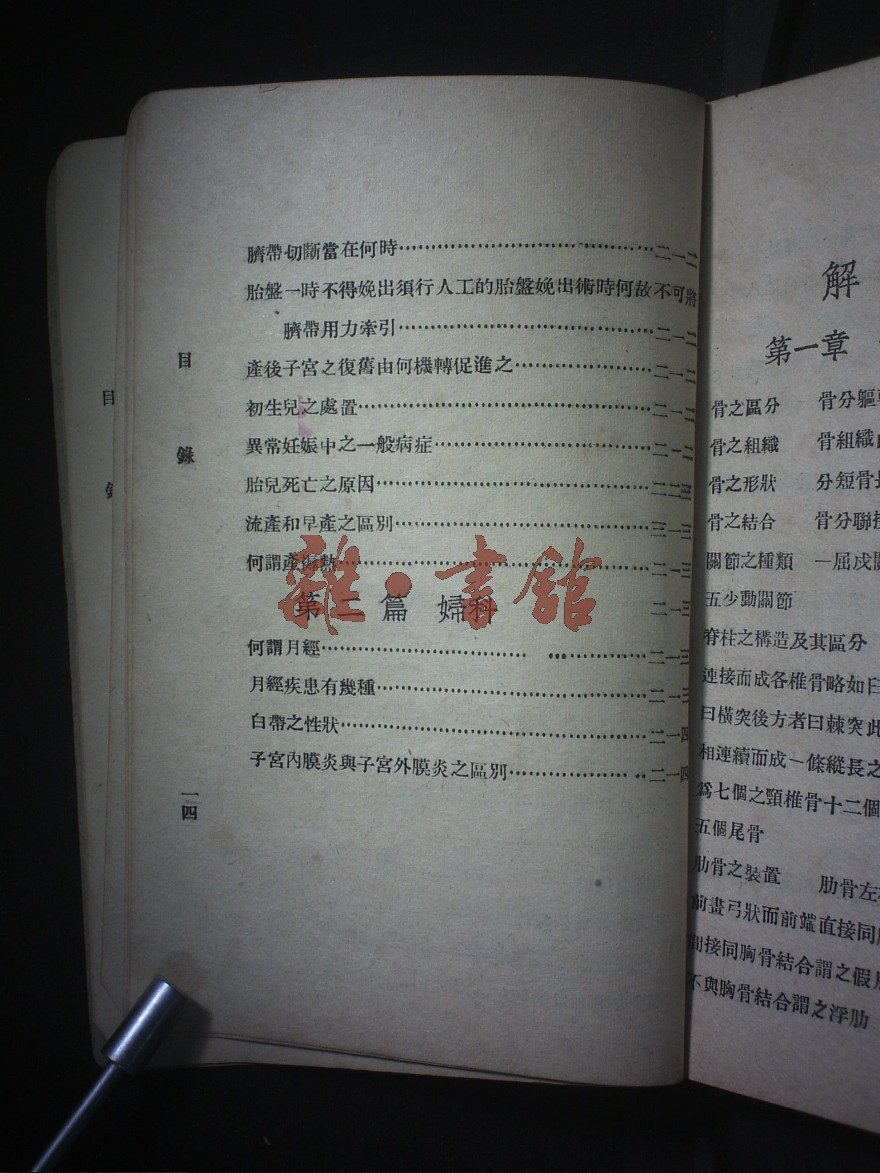 臍帶切斷當在何時……………………………………二一二
胎盤一時不得娩出須行人工的胎盤娩出術時何故不可將
臍帶用力牽引……………………………………二一二
產後子宮之復舊由何機轉促進之……………………二一二
初生兒之處置……………………………………二一二
異常妊娠中之一般病症……………………………二一二
胎兒死亡之原因……………………………………
流產和早產之區別……………………………………
何謂產褥熱……………………………………二一三
第二篇 婦科
二一三
何謂月經……………………………………二一三
月經疾患有幾種……………………………………二一三
白帶之性狀……………………………………二一四
子宮內膜炎與子宮外膜炎之區別……………………二一四
目
錄
一四
目
雜·書館
解
第一章
骨之區分 骨分軀
骨之組織 骨組織
骨之形狀 分短骨
骨之結合 骨分聯
關節之種類 一屈戍
五少動關節
脊柱之構造及其區分
連接而成各椎骨略如臼
曰橫突後方者曰棘突此
相連續而成一條縱長之
爲七個之頸椎骨十二個
五個尾骨
肋骨之裝置 肋骨左
前畫弓狀而前端直接同
間接同胸骨結合謂之假
不與胸骨結合謂之浮肋